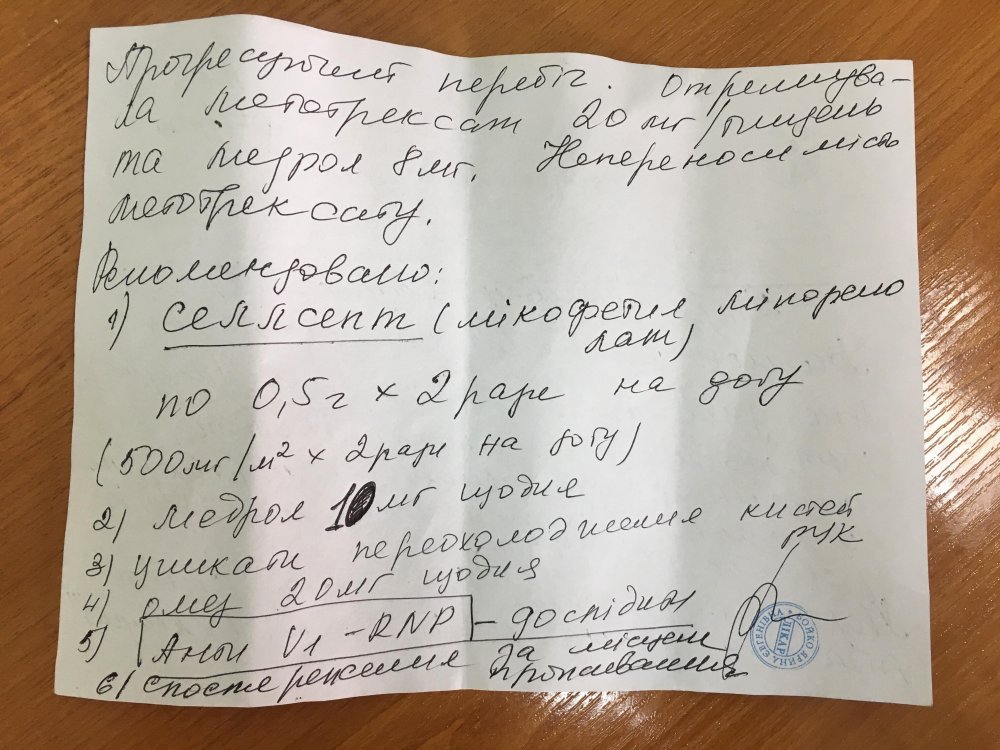 Прогресуючий перебіг. Отримува-
ла метотрексат 20 мг/тиждень
та медрол 8 мг. Непереносимість
метотрексату.
Рекомендовано:
1) селлсепт (мікофетил мікофено
лат)
по 0,5 г × 2 рази на добу
(500 мг/м² × 2 рази на добу)
2) медрол 10 мг щодня
3) уникати переохолодження кистей
рук
4) омез 20 мг щодня
5) Анти U1-RNP - дослідити
6) спостереження за місцем
проживання
ЛІКАР
БОЙКО ЯРИНА ЄВГЕНІВНА